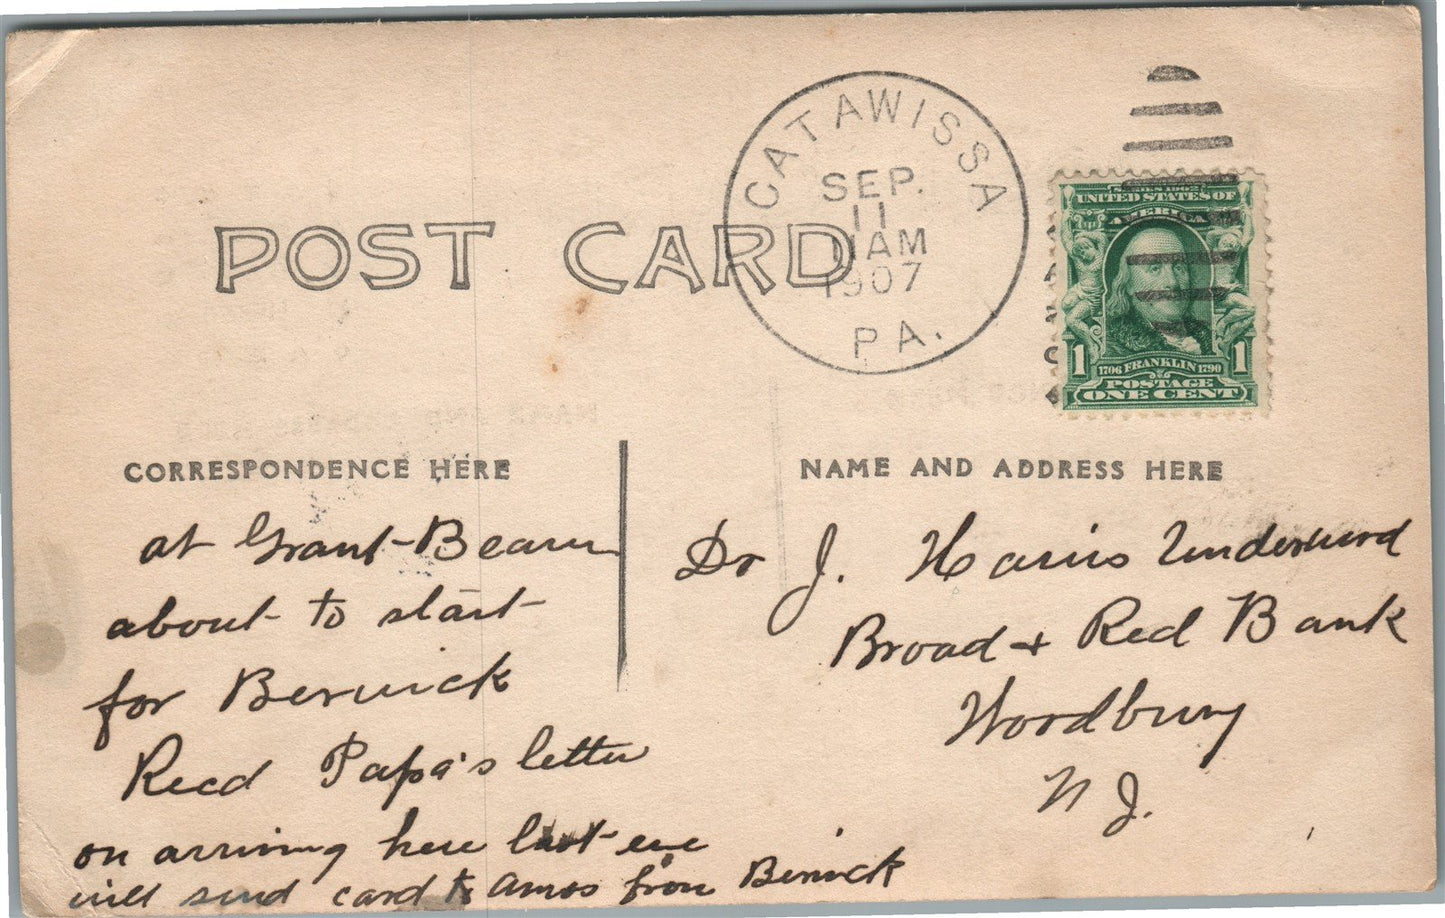 CATAWISSA
SEP.
11
11AM
1907
PA.
POST CARD
SERIES 1902
UNITED STATES OF
AMERICA
1 1
1706 FRANKLIN 1790
POSTAGE
ONE CENT
CORRESPONDENCE HERE
at Grant-
about to start
for Berwick
Recd Papa's letter
on arriving here last eve
will send card to Amos from Berwick
NAME AND ADDRESS HERE
Dr J. Harris Underwood
Broad + Red Bank
Woodbury
N J.